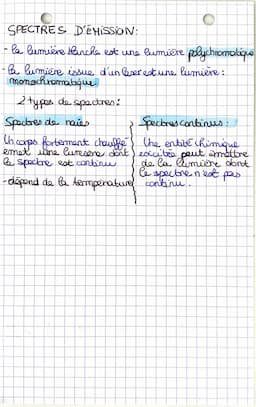 SPECTRES D'ÉMISSION:
- la lumière blanche est une lumière polychromatique
- la lumière issue d'un laser est une lumière:
monochromatique
2 types de spectres:
Spectres de raies
Un corps fortement chauffé
emet une lumière dont
le spectre est continu
- dépend de la température
Spectres continus:
Une entité chimique
excitée peut émettre
de la lumière dont
le spectre n'est pas
continu.